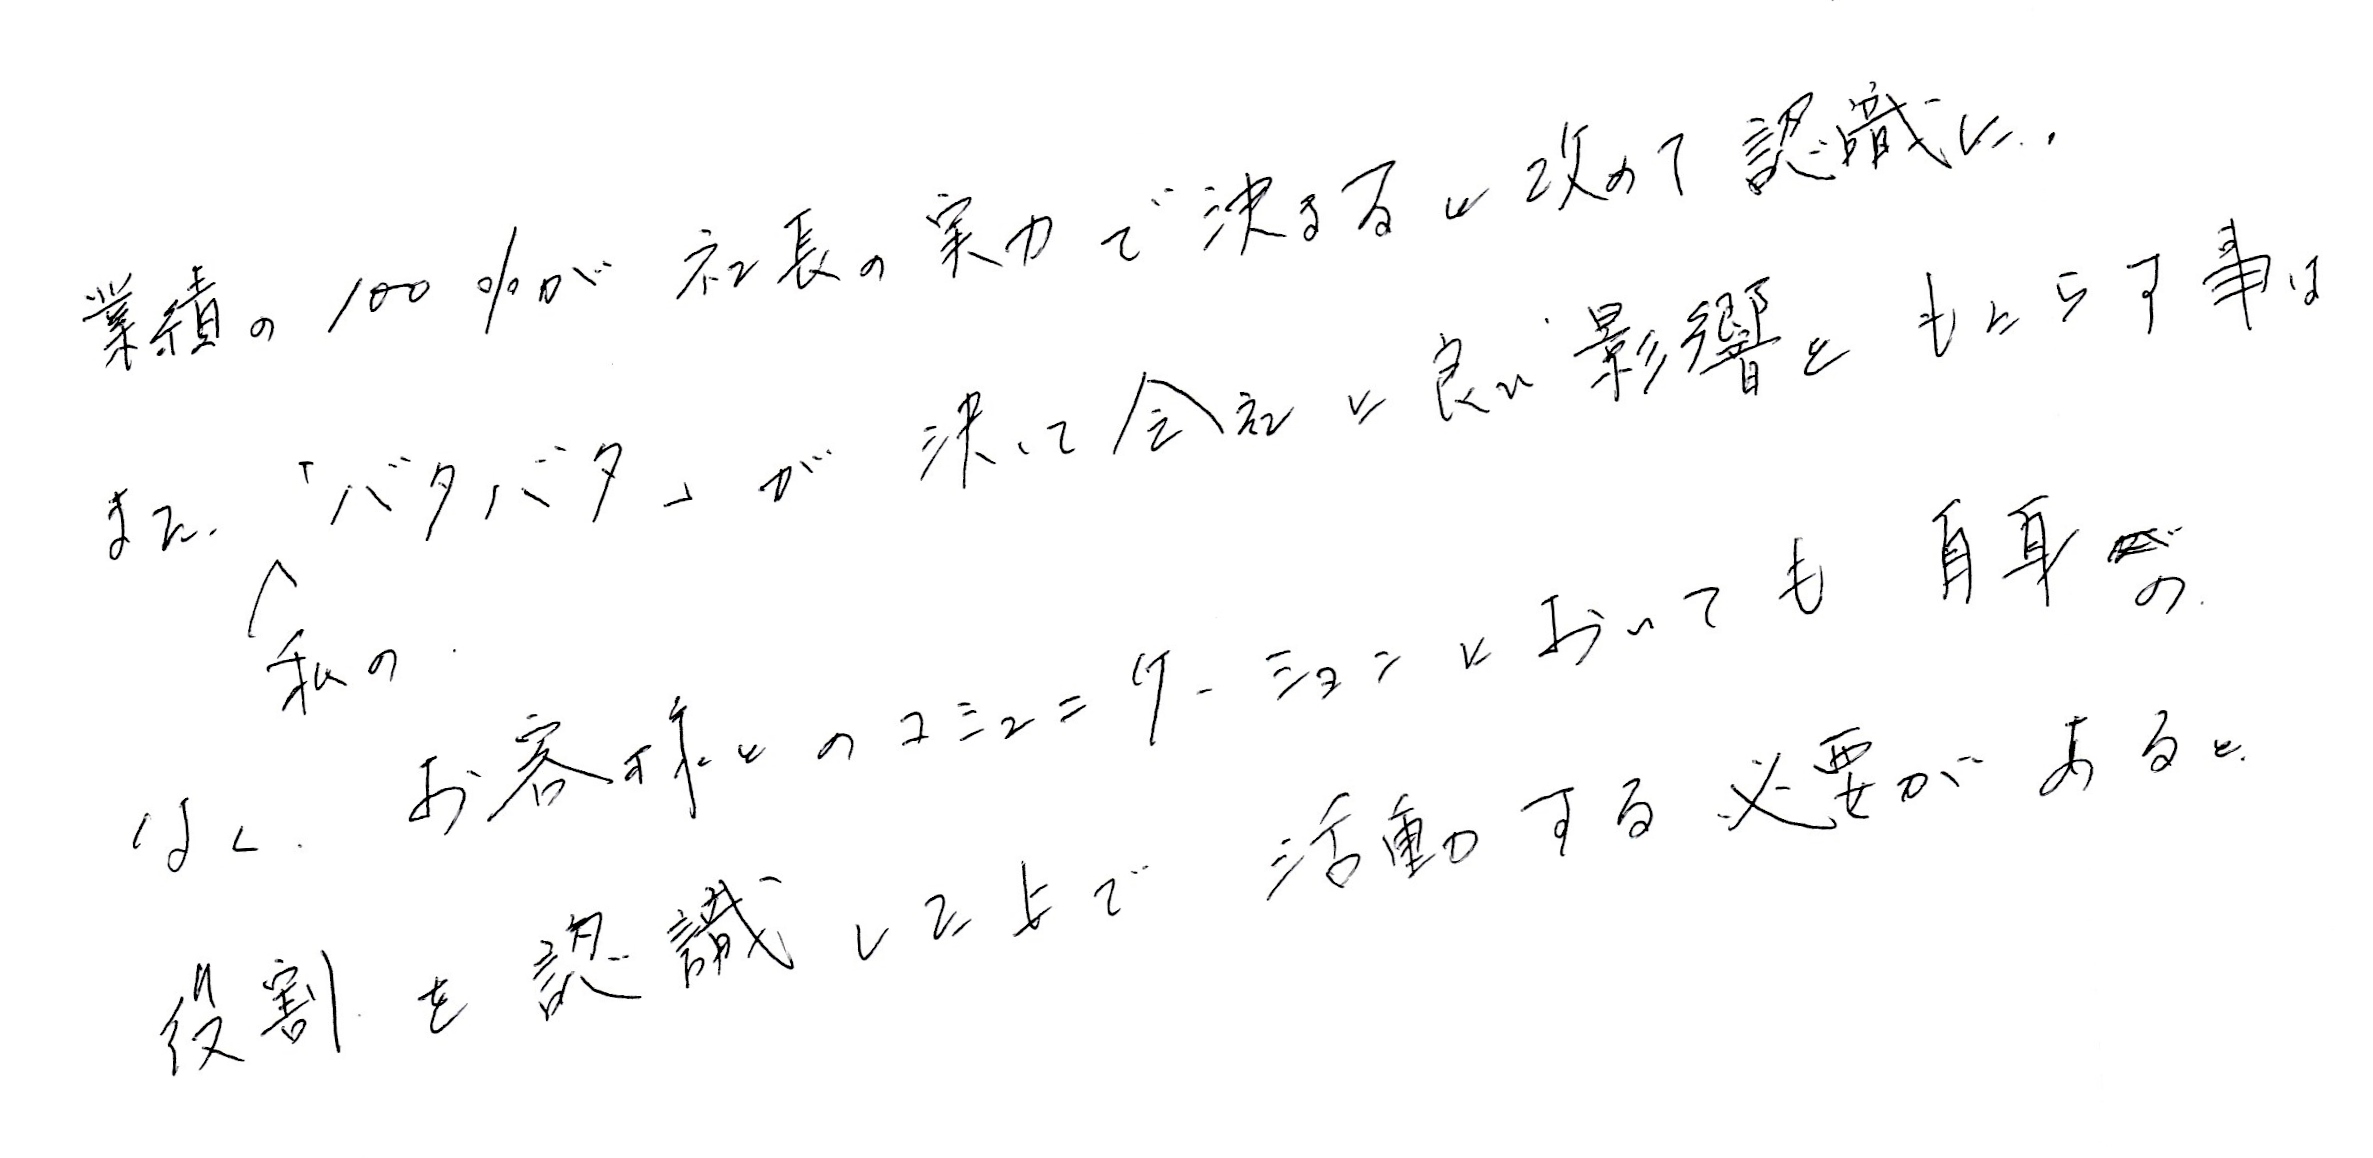 業績の100%が社長の実力で決まると改めて認識した.
また、私の「バタバタ」が決して会社に良い影響をもたらす事は
なく、お客様とのコミュニケーションにおいても自身の
役割を認識した上で活動する必要があると.